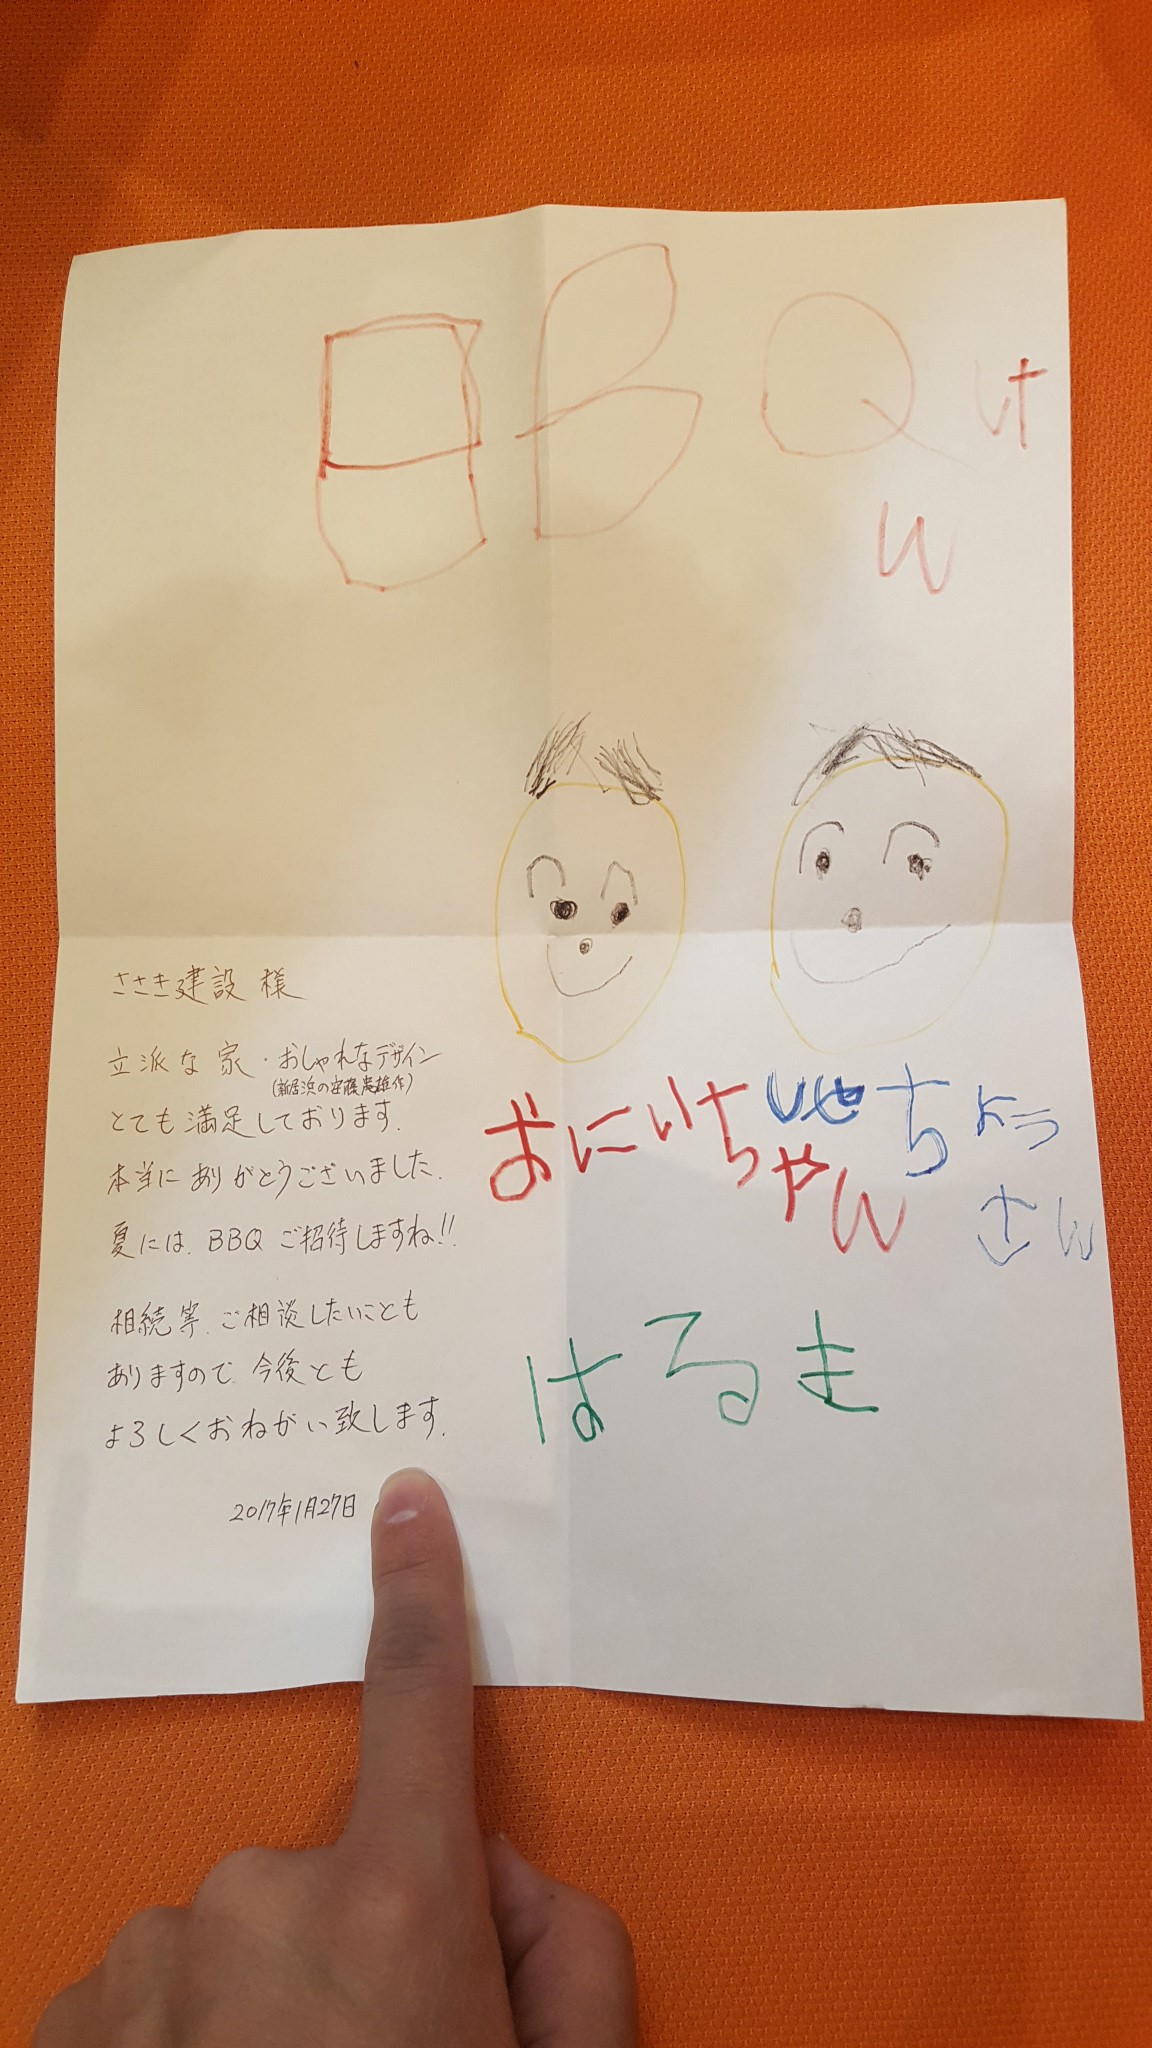 BBQけ
ん
ささき建設 様
立派な家・おしゃれなデザイン
(新居浜の安藤忠雄作)
とても満足しております.
本当にありがとうございました.
夏には、BBQご招待しますね!!
相続等、ご相談したいことも
ありますので、今後とも
よろしくおねがい致します.
2017年1月27日
おにいちゃん
しゃちょう
さん
はるま